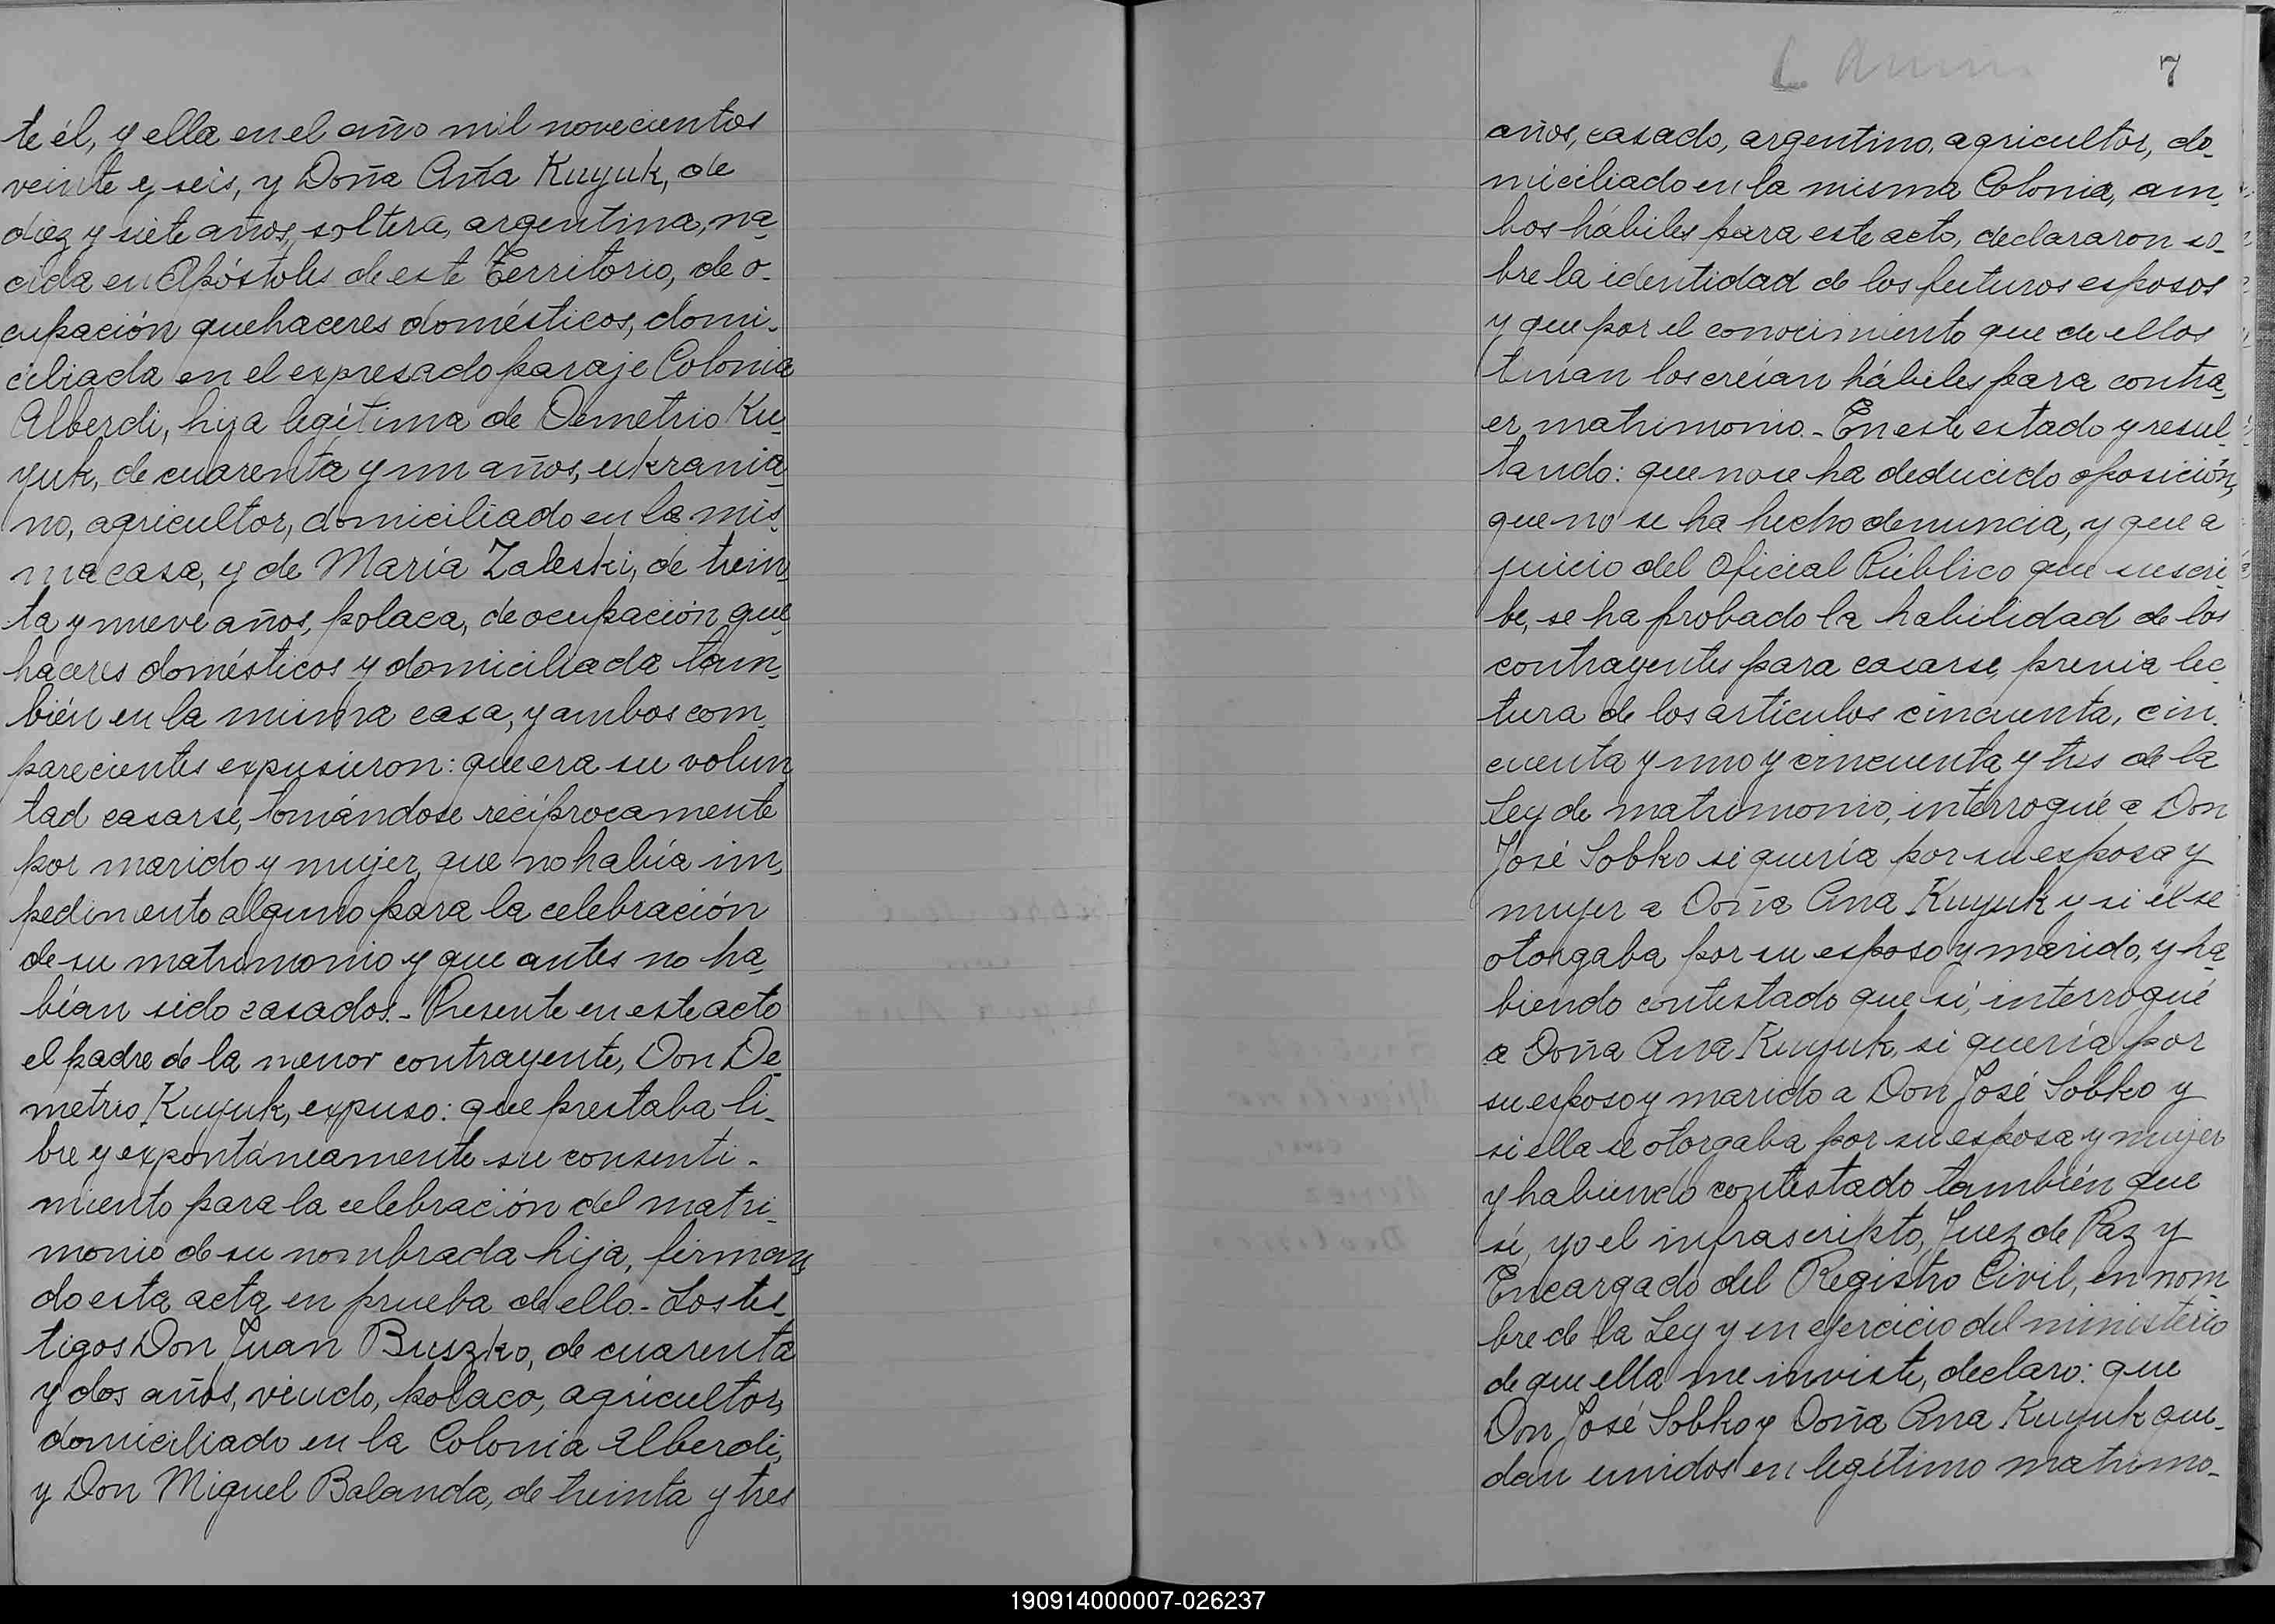 te él, y ella en el año mil novecientos
veinte y seis, y Doña Ana Kuyuk, de
diez y siete años, soltera, argentina, na-
cida en Apóstoles de este Territorio, de o-
cupación quehaceres domésticos, domi-
ciliada en el expresado paraje Colonia
Alberdi, hija legítima de Demetrio Ku-
yuk, de cuarenta y un años, ukrania-
no, agricultor, domiciliado en la mis-
ma casa, y de María Zaleski, de trein-
ta y nueve años, polaca, de ocupación que-
haceres domésticos y domiciliada tam-
bién en la misma casa, y ambos com-
parecientes expusieron: que era su volun-
tad casarse, tomándose recíprocamente
por marido y mujer, que no había im-
pedimento alguno para la celebración
de su matrimonio y que antes no ha-
bían sido casados.- Presente en este acto
el padre de la menor contrayente, Don De-
metrio Kuyuk, expuso: que prestaba li-
bre y expontáneamente su consenti-
miento para la celebración del matri-
monio de su nombrada hija, firman-
do esta acta en prueba de ello.- Los tes-
tigos Don Juan Buszko, de cuarenta
y dos años, viudo, polaco, agricultor,
domiciliado en la Colonia Alberdi,
y Don Miguel Balanda, de treinta y tres
7
años, casado, argentino, agricultor, do-
miciliado en la misma Colonia, am-
bos hábiles para este acto, declararon so-
bre la identidad de los futuros esposos
y que por el conocimiento que de ellos
tenían los creían hábiles para contra-
er matrimonio.- En este estado y resul-
tando: que no se ha deducido oposición,
que no se ha hecho denuncia, y que a
juicio del Oficial Público que suscri-
be, se ha probado la habilidad de los
contrayentes para casarse, previa lec-
tura de los artículos cincuenta, cin-
cuenta y uno y cincuenta y tres de la
Ley de matrimonio, interrogué a Don
José Sobko si quería por su esposa y
mujer a Doña Ana Kuyuk y si él se
otorgaba por su esposo y marido, y ha-
biendo contestado que sí, interrogué
a Doña Ana Kuyuk, si quería por
su esposo y marido a Don José Sobko y
si ella se otorgaba por su esposa y mujer
y habiendo contestado también que
sí, yo el infrascripto, Juez de Paz y
Encargado del Registro Civil, en nom-
bre de la Ley y en ejercicio del ministerio
de que ella me inviste, declaro: que
Don José Sobko y Doña Ana Kuyuk que-
dan unidos en legítimo matrimo-
190914000007-026237